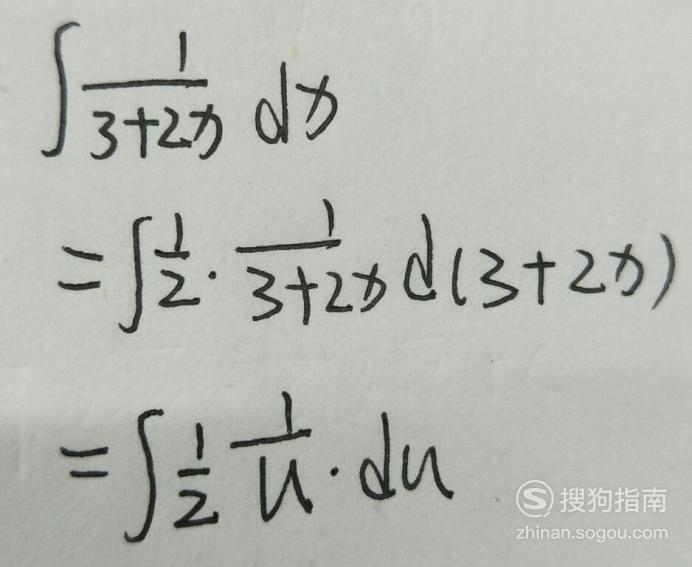 ∫ 1/(3+2x) dx
= ∫ 1/2 · 1/(3+2x) d(3+2x)
= ∫ 1/2 1/u · du
搜狗指南
zhinan.sogou.com